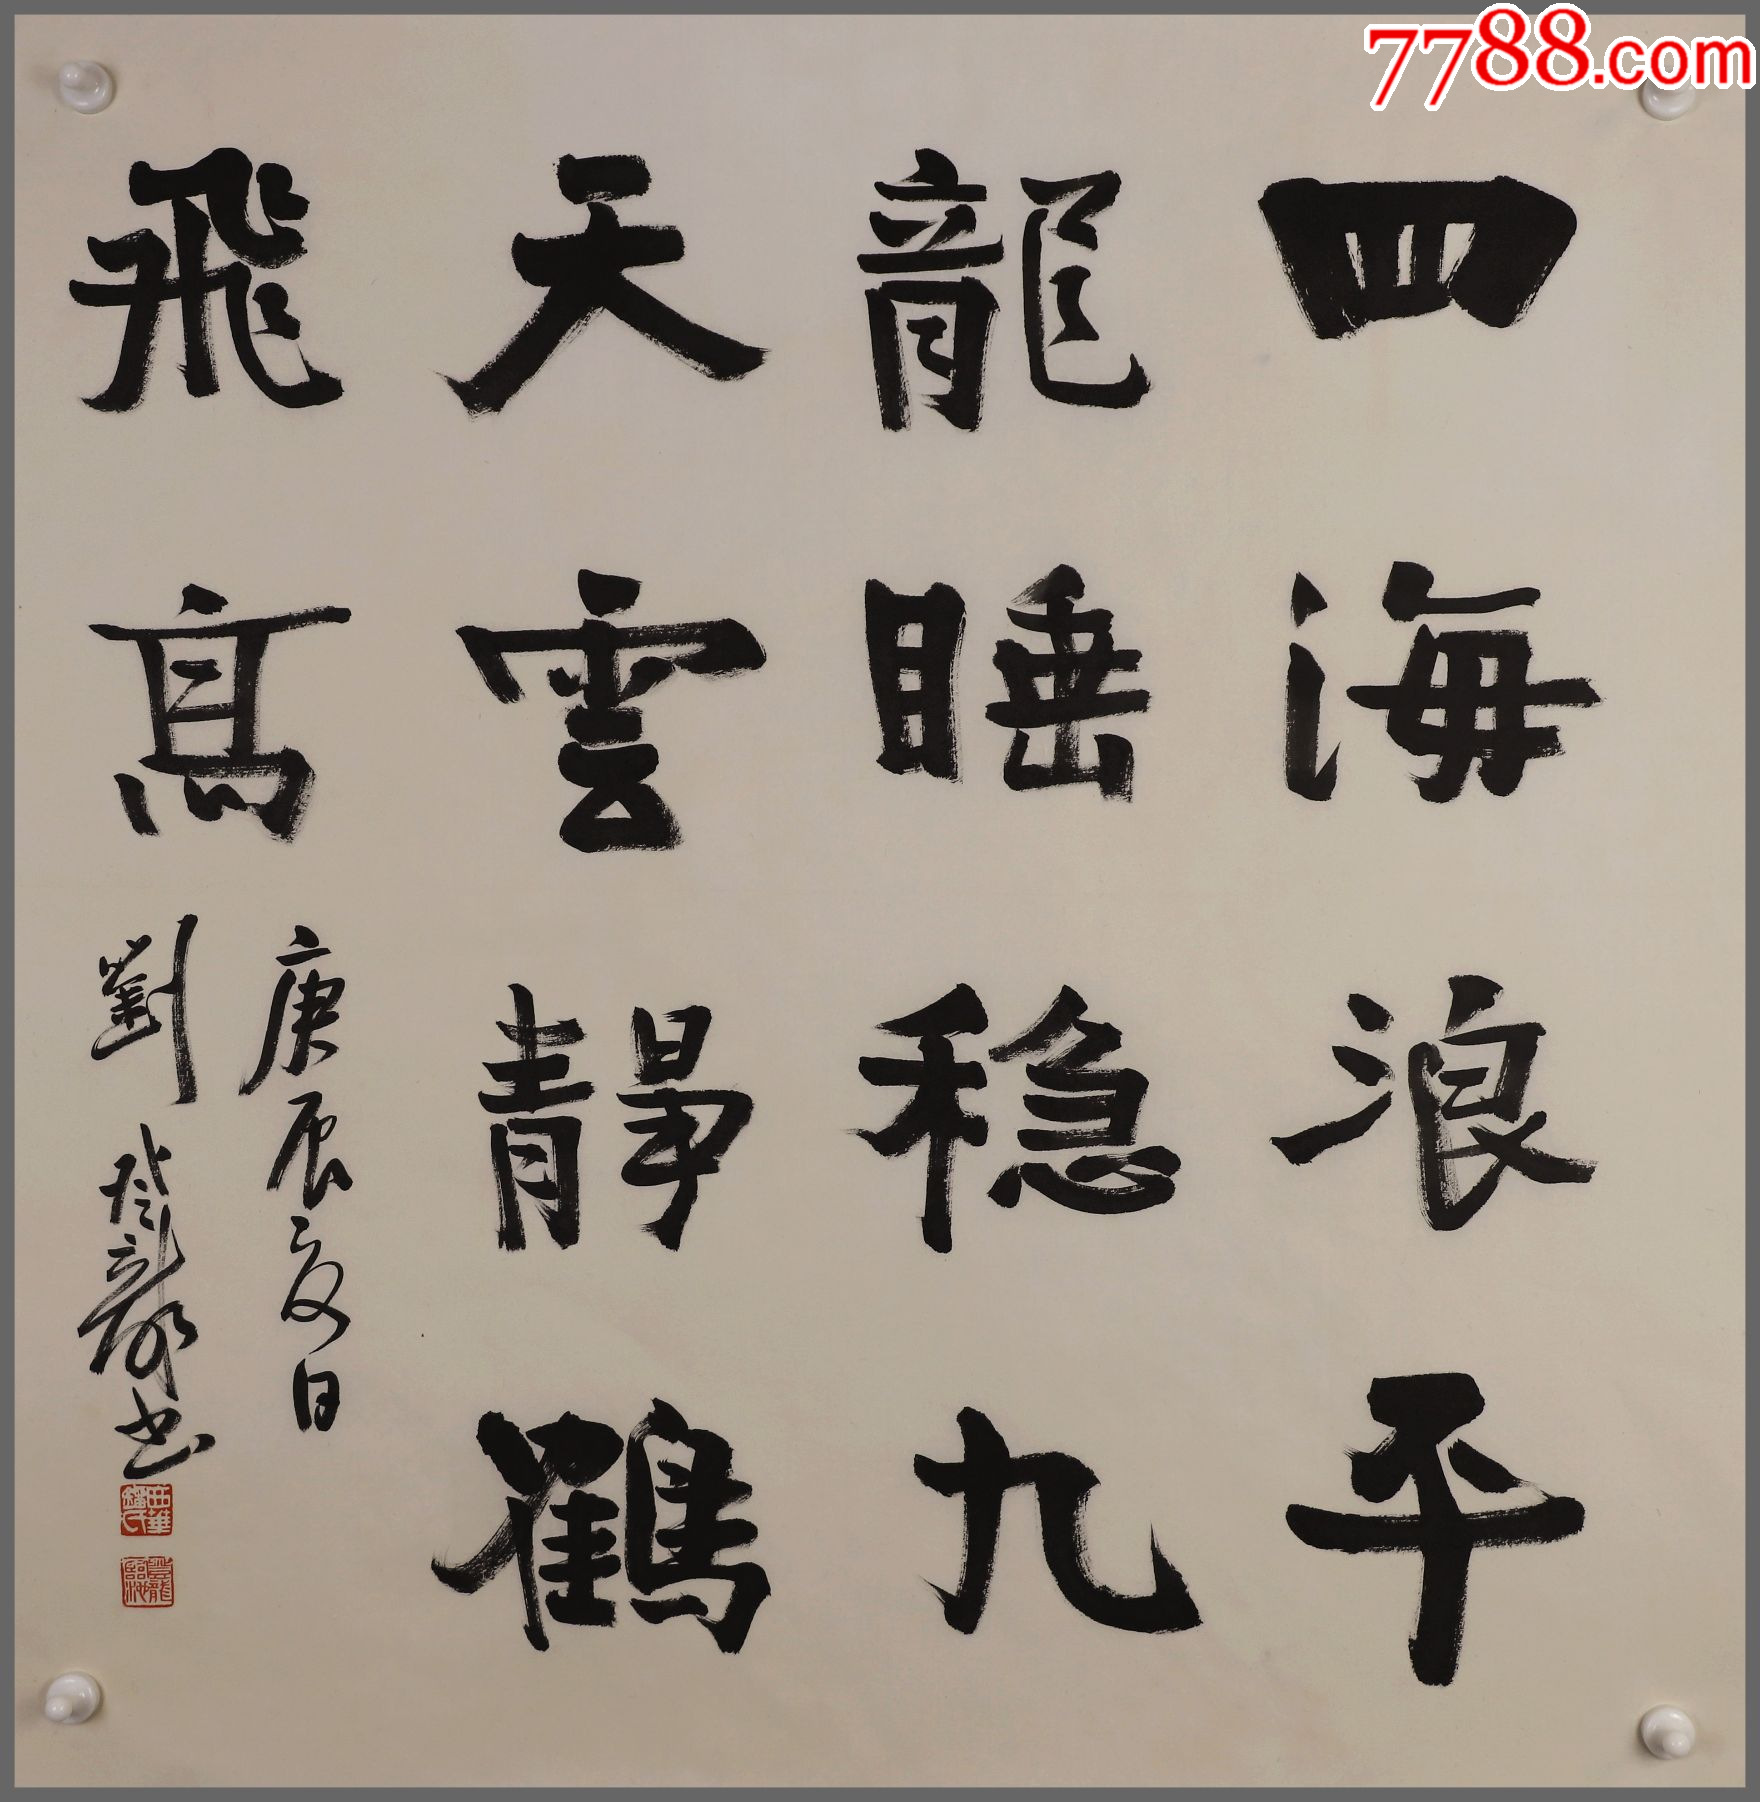 7788.com
四海浪平
龍睡穩九
天雲靜鶴
飛高
庚辰夏日
劉登龍書